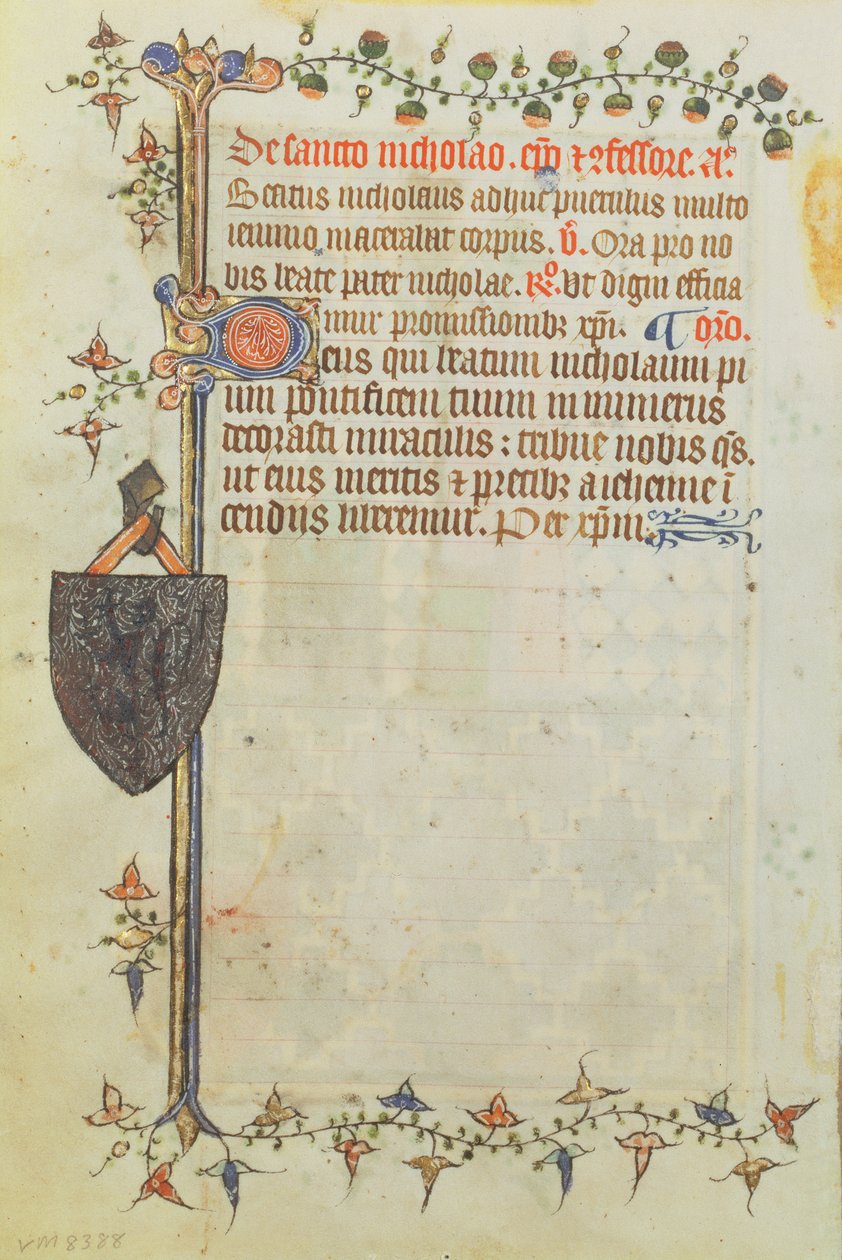 De sancto nicholao. ep̄o ⁊ ꝯfessore. Aᵃ.
Beatus nicholaus adhuc puerulus multo
ieiunio macerabat corpus. v̄. Ora pro no
bis beate pater nicholae. R̷o. Vt digni efficia
mur promissionibꝫ xp̄i. ¶ or̄o.
Deus qui beatum nicholaum pi
um pontificem tuum innumeris
decorasti miraculis: tribue nobis q̄s.
ut eius meritis ⁊ precibꝫ a iehenne ī
cendijs liberemur. Per xp̄m.
VM 8388